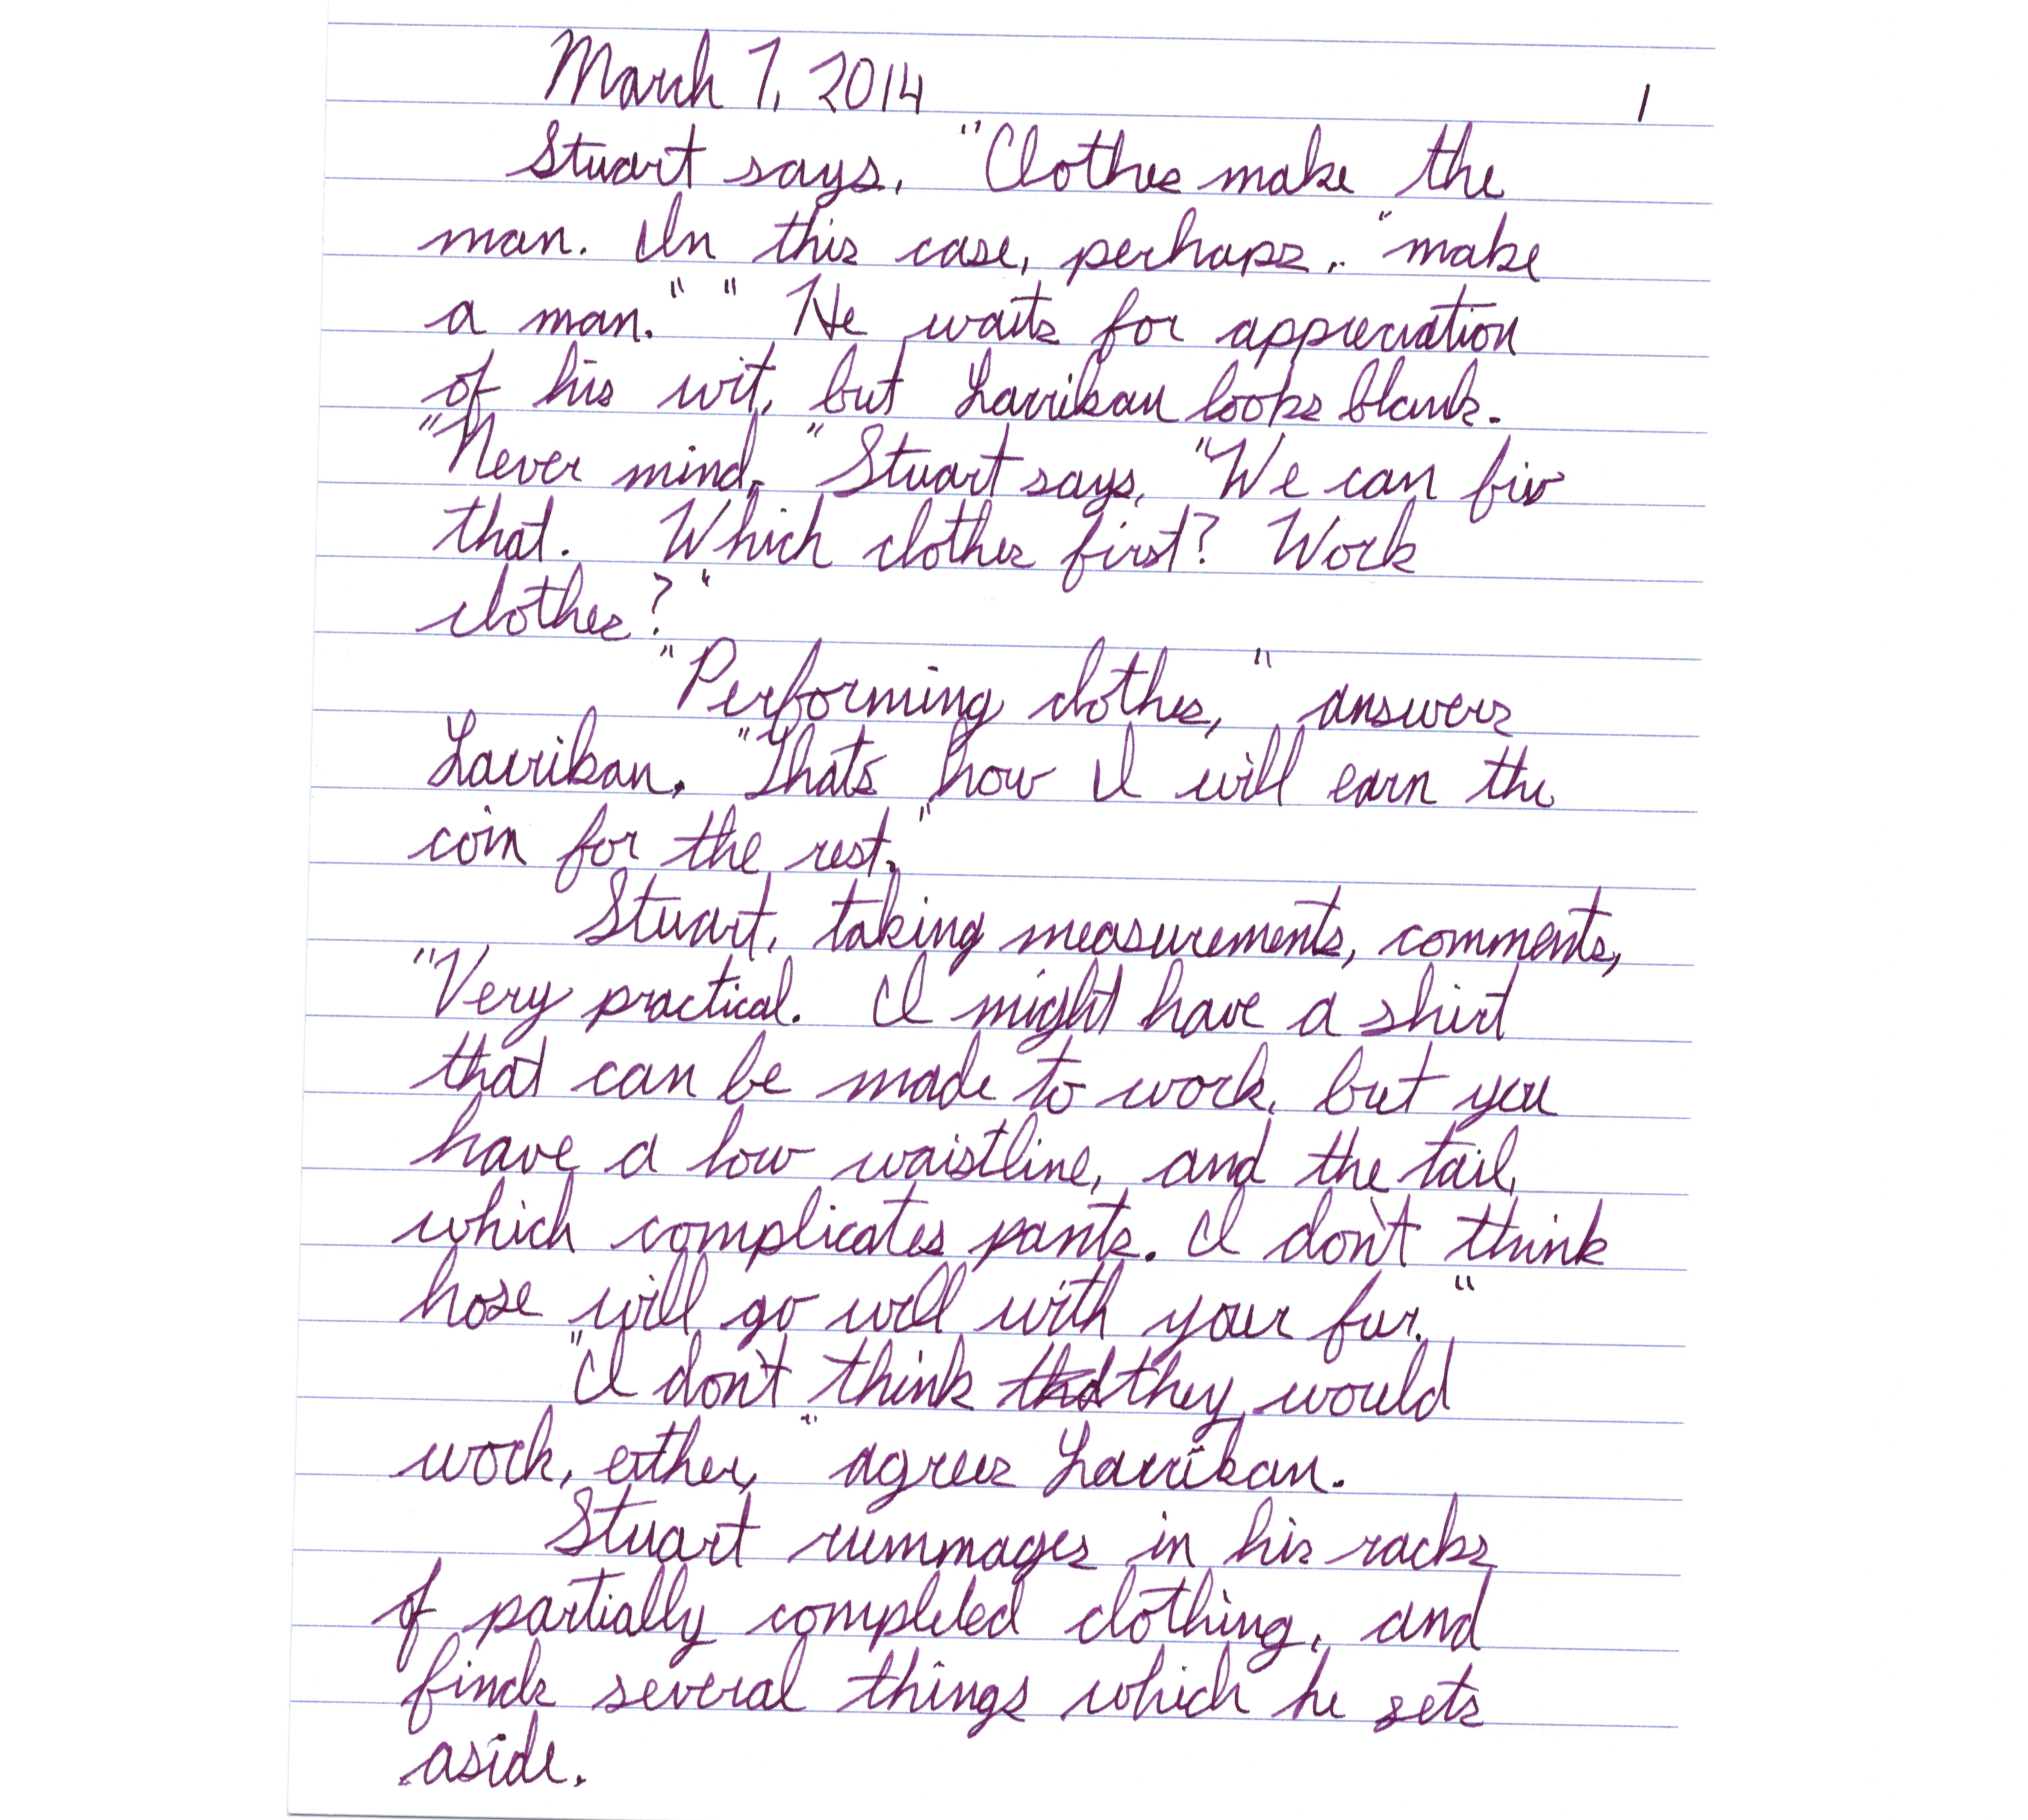 March 7, 2014 1
Stuart says, "Clothes make the
man. In this case, perhaps, "make
a man." " He waits for appreciation
of his wit, but Larrikan looks blank.
"Never mind," Stuart says, "We can fix
that. Which clothes first? Work
clothes?"
"Performing clothes," answers
Larrikan. "That's how I will earn the
coin for the rest."
Stuart, taking measurements, comments,
"Very practical. I might have a shirt
that can be made to work, but you
have a low waistline, and the tail,
which complicates pants. I don't think
hose will go well with your fur."
"I don't think that they would
work, either," agrees Larrikan.
Stuart rummages in his racks
of partially completed clothing, and
finds several things which he sets
aside.